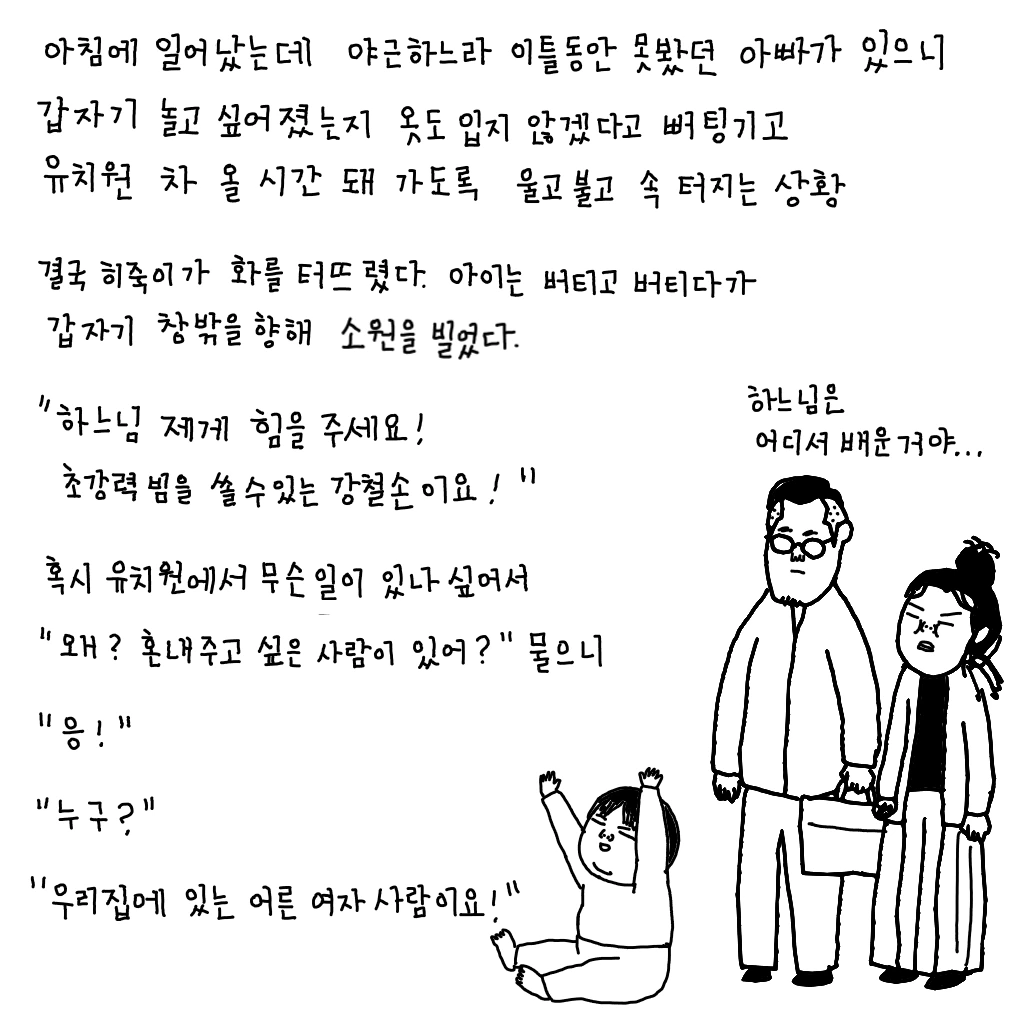 아침에 일어났는데 야근하느라 이틀동안 못봤던 아빠가 있으니
갑자기 놀고 싶어졌는지 옷도 입지 않겠다고 뻐팅기고
유치원 차 올 시간 돼 가도록 울고불고 속 터지는 상황
결국 히죽이가 화를 터뜨렸다. 아이는 버티고 버티다가
갑자기 창밖을 향해 소원을 빌었다.
"하느님 제게 힘을 주세요!
초강력 빔을 쏠 수 있는 강철손이요! "
혹시 유치원에서 무슨 일이 있나 싶어서
"왜? 혼내주고 싶은 사람이 있어?" 물으니
"응!"
"누구?"
"우리집에 있는 어른 여자 사람이요!"
하느님은
어디서 배운거야...